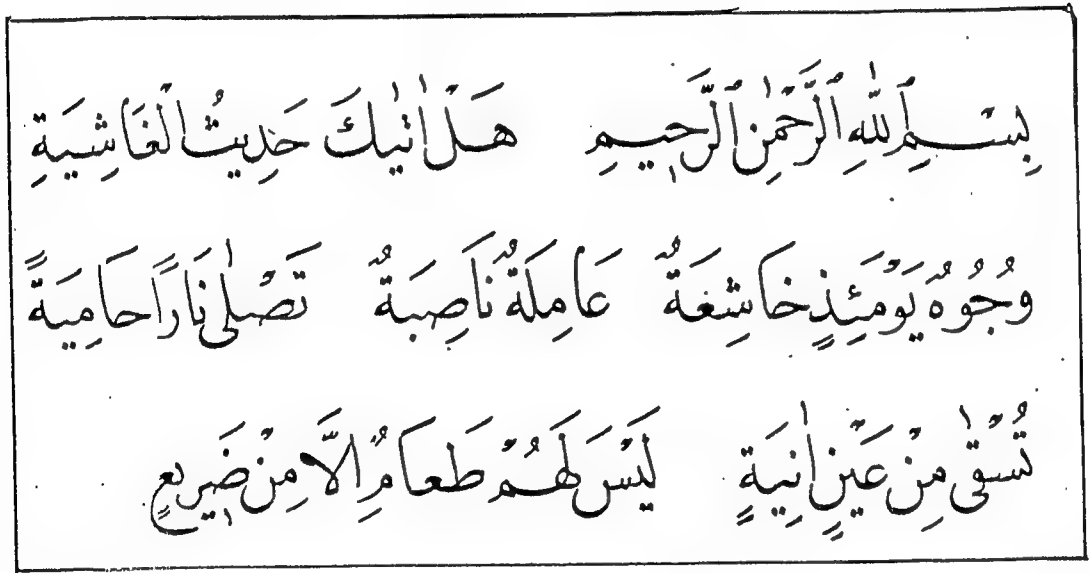 بِسْمِ ٱللّٰهِ ٱلرَّحْمٰنِ ٱلرَّحِيمِ هَلْ اٰتٰيكَ حَدِيثُ الْغَاشِيَةِ
وُجُوهٌ يَوْمَئِذٍ خَاشِعَةٌ عَامِلَةٌ نَاصِبَةٌ تَصْلٰى نَارًا حَامِيَةً
تُسْقٰى مِنْ عَيْنٍ اٰنِيَةٍ لَيْسَ لَهُمْ طَعَامٌ اِلَّا مِنْ ضَرِيعٍ